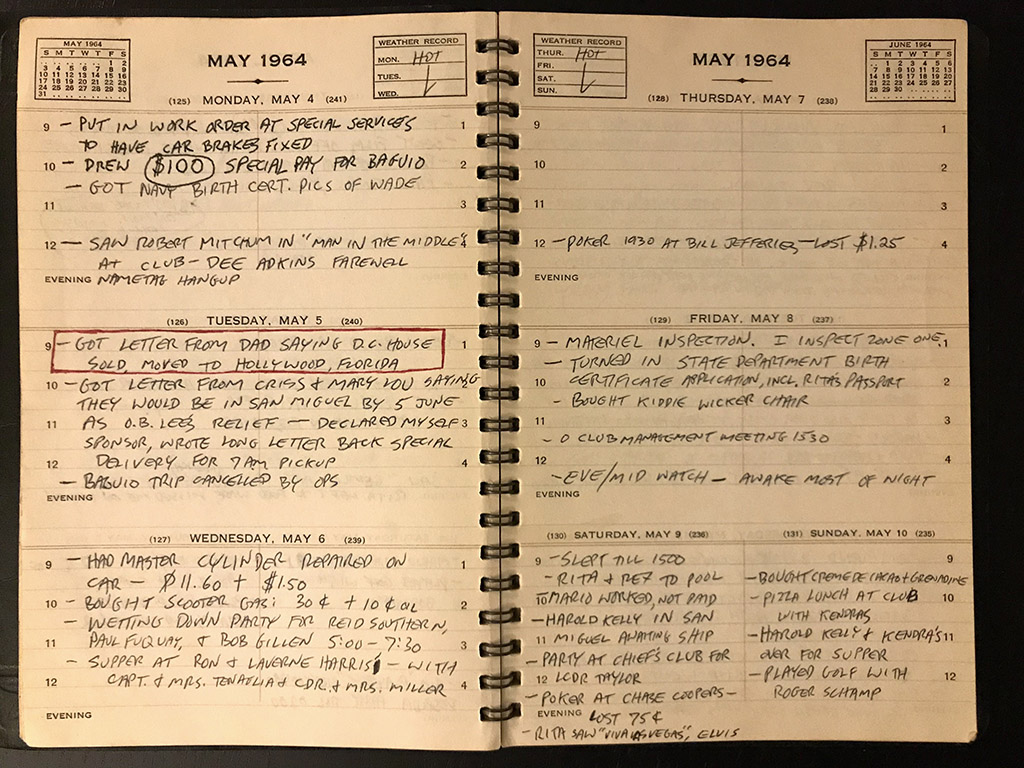 MAY 1964
S M T W T F S
1 2
3 4 5 6 7 8 9
10 11 12 13 14 15 16
17 18 19 20 21 22 23
24 25 26 27 28 29 30
31
MAY 1964
WEATHER RECORD
MON. HOT
TUES.
WED.
(125) MONDAY, MAY 4 (241)
9 – PUT IN WORK ORDER AT SPECIAL SERVICES 1
TO HAVE CAR BRAKES FIXED
10 – DREW $100 SPECIAL PAY FOR BAGUIO 2
– GOT NAVY BIRTH CERT. PICS OF WADE
11 3
12 – SAW ROBERT MITCHUM IN "MAN IN THE MIDDLE" 4
AT CLUB – DEE ADKINS FAREWELL
EVENING NAMETAG HANGUP
(126) TUESDAY, MAY 5 (240)
9 – GOT LETTER FROM DAD SAYING D.C. HOUSE 1
SOLD, MOVED TO HOLLYWOOD, FLORIDA
10 – GOT LETTER FROM CRISS & MARY LOU SAYING 2
THEY WOULD BE IN SAN MIGUEL BY 5 JUNE
11 AS O.B. LEE'S RELIEF – DECLARED MYSELF 3
SPONSOR, WROTE LONG LETTER BACK SPECIAL
12 DELIVERY FOR 7 AM PICKUP 4
– BAGUIO TRIP CANCELLED BY OPS
EVENING
(127) WEDNESDAY, MAY 6 (239)
9 – HAD MASTER CYLINDER REPAIRED ON 1
CAR – $11.60 + $1.50
10 – BOUGHT SCOOTER GAS: 30¢ + 10¢ OIL 2
– WETTING DOWN PARTY FOR REID SOUTHERN,
11 PAUL FUQUAY, & BOB GILLEN 5:00 – 7:30 3
– SUPPER AT RON & LAVERNE HARRIS – WITH
12 CAPT. & MRS. TENAGLIA & CDR. & MRS. MILLER 4
EVENING
WEATHER RECORD
THUR. HOT
FRI.
SAT.
SUN.
MAY 1964
JUNE 1964
S M T W T F S
1 2 3 4 5 6
7 8 9 10 11 12 13
14 15 16 17 18 19 20
21 22 23 24 25 26 27
28 29 30
(128) THURSDAY, MAY 7 (238)
9 1
10 2
11 3
12 – POKER 1930 AT BILL JEFFERIES – LOST $1.25 4
EVENING
(129) FRIDAY, MAY 8 (237)
9 – MATERIEL INSPECTION. I INSPECT ZONE ONE. 1
– TURNED IN STATE DEPARTMENT BIRTH
10 CERTIFICATE APPLICATION, INCL. RITA'S PASSPORT 2
– BOUGHT KIDDIE WICKER CHAIR
11 3
– O CLUB MANAGEMENT MEETING 1530
12 4
– EVE/MID WATCH – AWAKE MOST OF NIGHT
EVENING
(130) SATURDAY, MAY 9 (236)
9 – SLEPT TILL 1500
– RITA & REZ TO POOL
10 MARIO WORKED, NOT PAID
– HAROLD KELLY IN SAN
11 MIGUEL AWAITING SHIP
– PARTY AT CHIEF'S CLUB FOR
12 LCDR TAYLOR
– POKER AT CHASE COOPERS –
EVENING LOST 75¢
– RITA SAW "VIVA LAS VEGAS", ELVIS
(131) SUNDAY, MAY 10 (235)
9
– BOUGHT CREME DE CACAO & GRENADINE
– PIZZA LUNCH AT CLUB 10
WITH KENDRAS
– HAROLD KELLY & KENDRA'S 11
OVER FOR SUPPER
– PLAYED GOLF WITH 12
ROGER SCHAMP